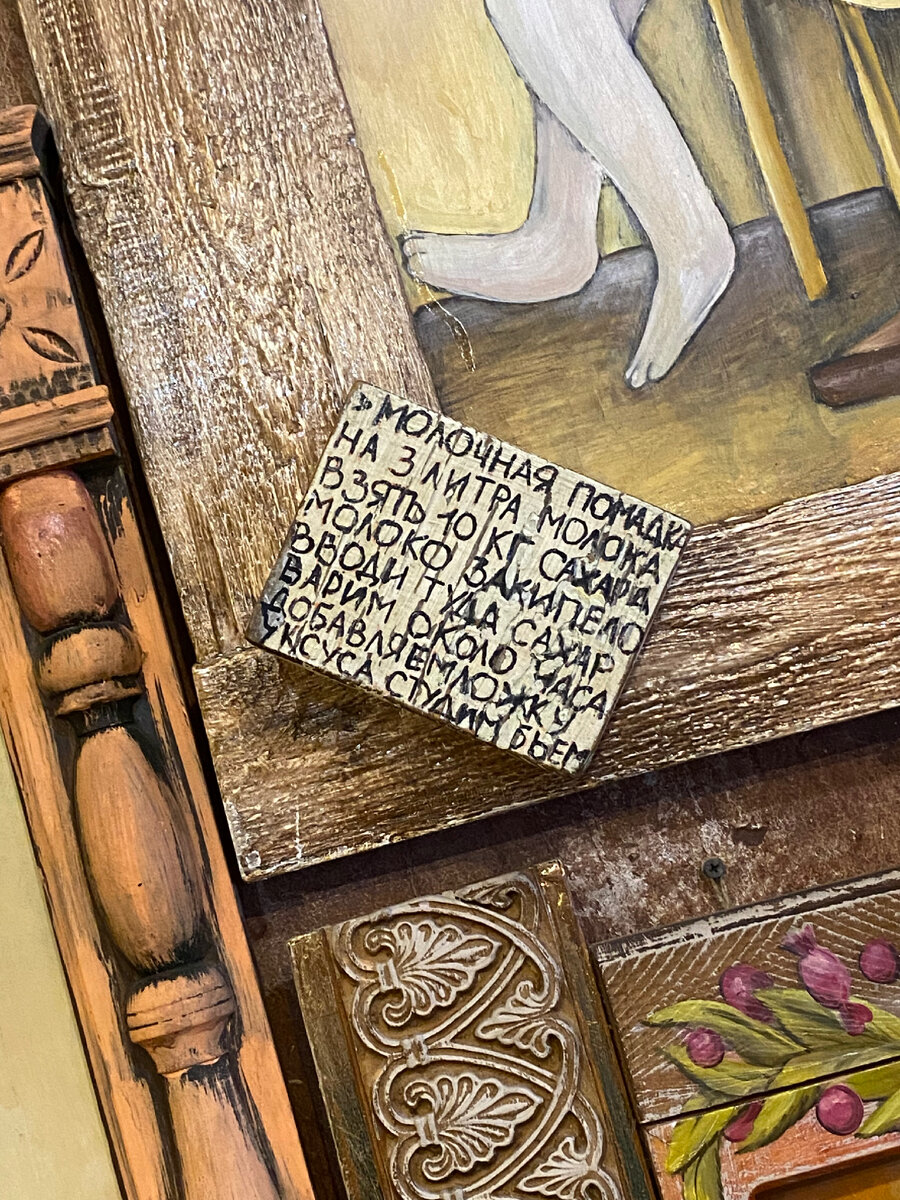 > МОЛОЧНАЯ ПОМАДКА
НА 3 ЛИТРА МОЛОКА
ВЗЯТЬ 10 КГ САХАРА
МОЛОКО ЗАКИПЕЛО
ВВОДИ ТУДА САХАР
ВАРИМ ОКОЛО ЧАСА
ДОБАВЛЯЕМ ЛОЖКУ
УКСУСА СТУДИМ БЬЕМ